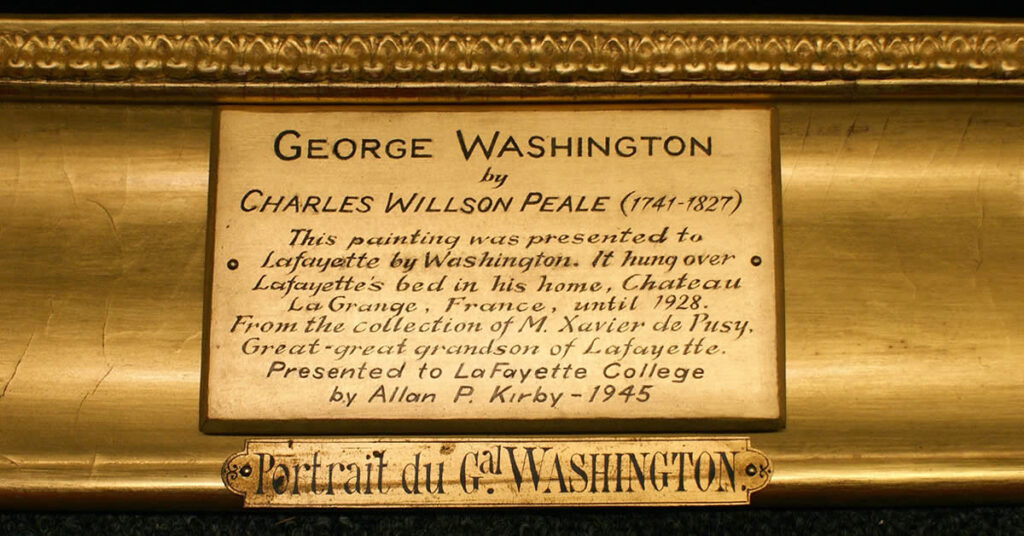 GEORGE WASHINGTON
by
CHARLES WILLSON PEALE (1741-1827)
This painting was presented to
Lafayette by Washington. It hung over
Lafayette's bed in his home, Chateau
La Grange, France, until 1928.
From the collection of M. Xavier de Pusy,
Great-great grandson of Lafayette.
Presented to LaFayette College
by Allan P. Kirby - 1945
Portrait du Gal. WASHINGTON.